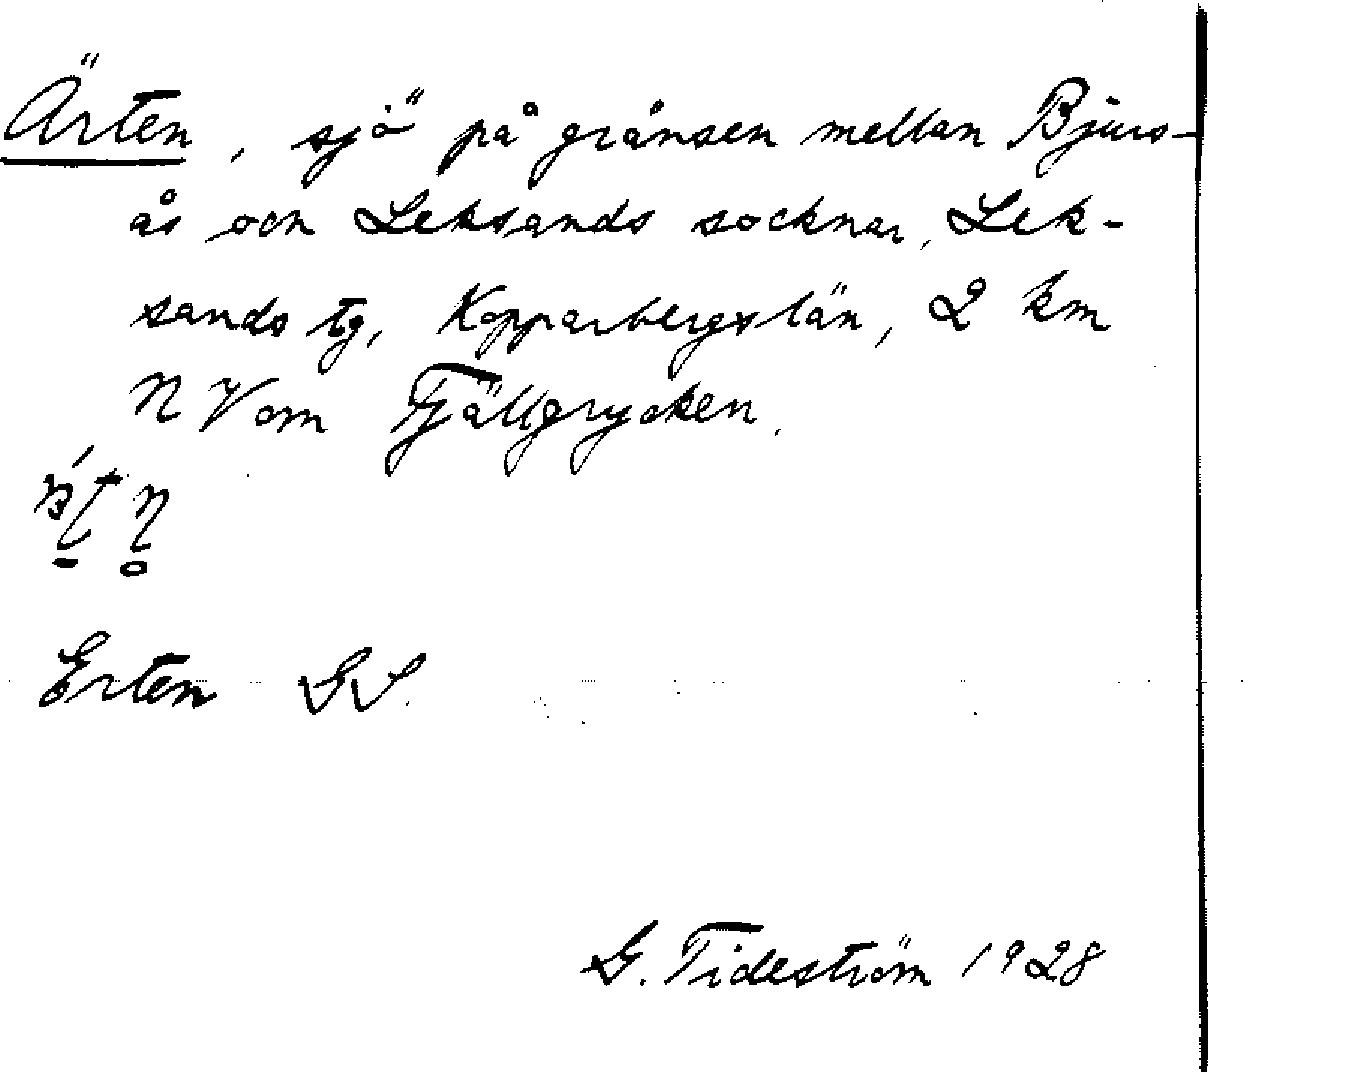 Ärten, sjö på gränsen mellan Bjurs-
ås och Leksands socknar, Lek-
sands tg, Kopparbergs län, 2 km
NV om Fjällgrycken.
Erten GS.
G. Tideström 1928